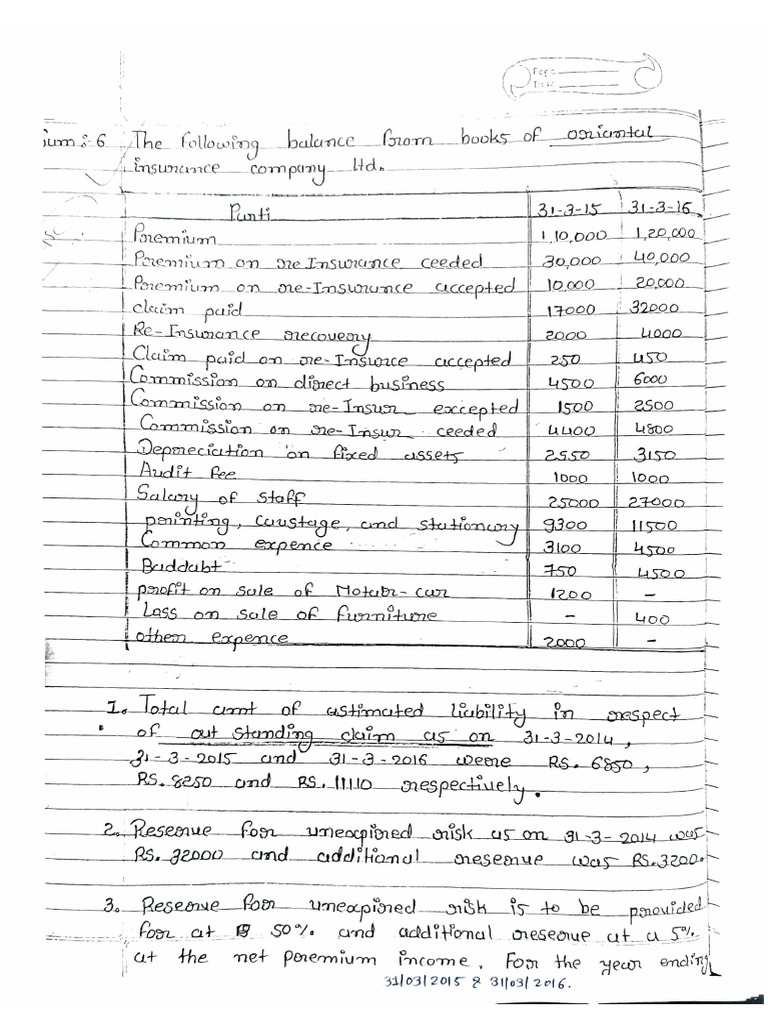 Page
Date
Sum:-6 The following balance from books of oriental
insurance company ltd.
Purti 31-3-15 31-3-16
Premium 1,10,000 1,20,000
Premium on re Insurance ceeded 30,000 40,000
Premium on re-Insurance accepted 10,000 20,000
claim paid 17000 32000
Re-Insurance recovery 2000 4000
Claim paid on re-Insurce accepted 250 450
Commission on direct business 4500 6000
Commission on re-Insur excepted 1500 2500
Commission on re-Insur ceeded 4400 4800
Depreciation on fixed assets 2550 3150
Audit fee 1000 1000
Salary of staff 25000 27000
printing, caustage, and stationary 9300 11500
Common expence 3100 4500
Baddabt 750 4500
profit on sale of Motar-car 1200 -
Lass on sale of furniture - 400
other expence 2000 -
1. Total amt of astimated liability in respect
of out standing claim as on 31-3-2014,
31-3-2015 and 31-3-2016 were RS. 6850,
RS. 8250 and RS. 11110 respectively.
2. Reserve for unexpired risk as on 31-3-2014 was
RS. 32000 and additional reserve was RS.3200.
3. Reserve for unexpired risk is to be provided
for at 50% and additional reserve at a 5%
at the net premium income. For the year ending
31/03/2015 & 31/03/2016.